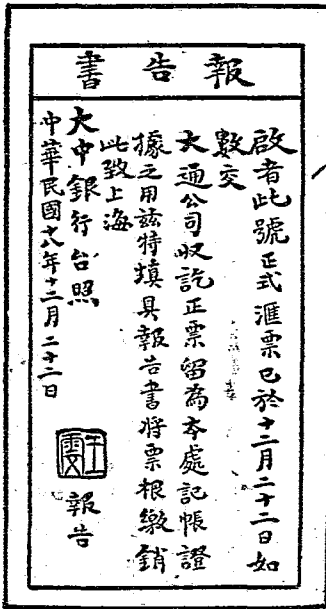 報告書
啟者此號正式滙票已於十二月二十二日如
數交
大通公司收訖正票留為本處記帳證
據之用茲特填具報告書將票根繳銷
此致上海
大中銀行台照
中華民國十八年十二月二十二日
王雲 報告